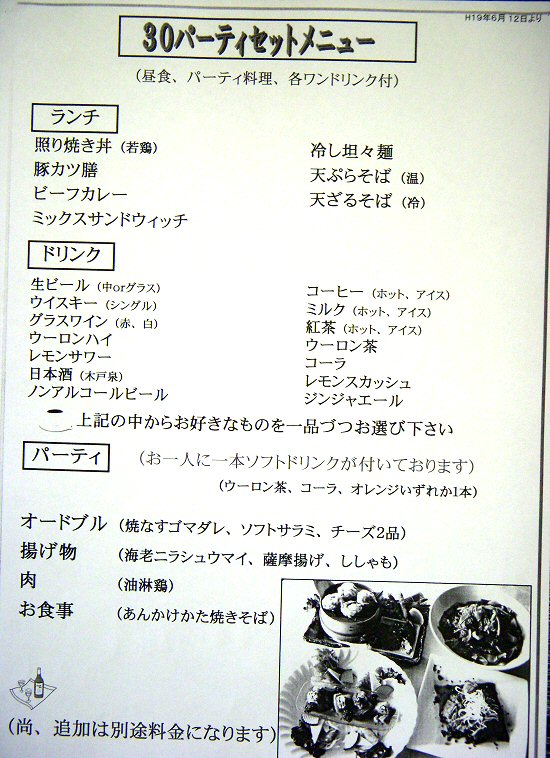 H19年6月12日より
30パーティセットメニュー
（昼食、パーティ料理、各ワンドリンク付）
ランチ
照り焼き丼（若鶏）
豚カツ膳
ビーフカレー
ミックスサンドウィッチ
冷し坦々麺
天ぷらそば（温）
天ざるそば（冷）
ドリンク
生ビール（中orグラス）
ウイスキー（シングル）
グラスワイン（赤、白）
ウーロンハイ
レモンサワー
日本酒（木戸泉）
ノンアルコールビール
コーヒー（ホット、アイス）
ミルク（ホット、アイス）
紅茶（ホット、アイス）
ウーロン茶
コーラ
レモンスカッシュ
ジンジャエール
上記の中からお好きなものを一品づつお選び下さい
パーティ
（お一人に一本ソフトドリンクが付いております）
（ウーロン茶、コーラ、オレンジいずれか1本）
オードブル（焼なすゴマダレ、ソフトサラミ、チーズ2品）
揚げ物（海老ニラシュウマイ、薩摩揚げ、ししゃも）
肉（油淋鶏）
お食事（あんかけかた焼きそば）
（尚、追加は別途料金になります）